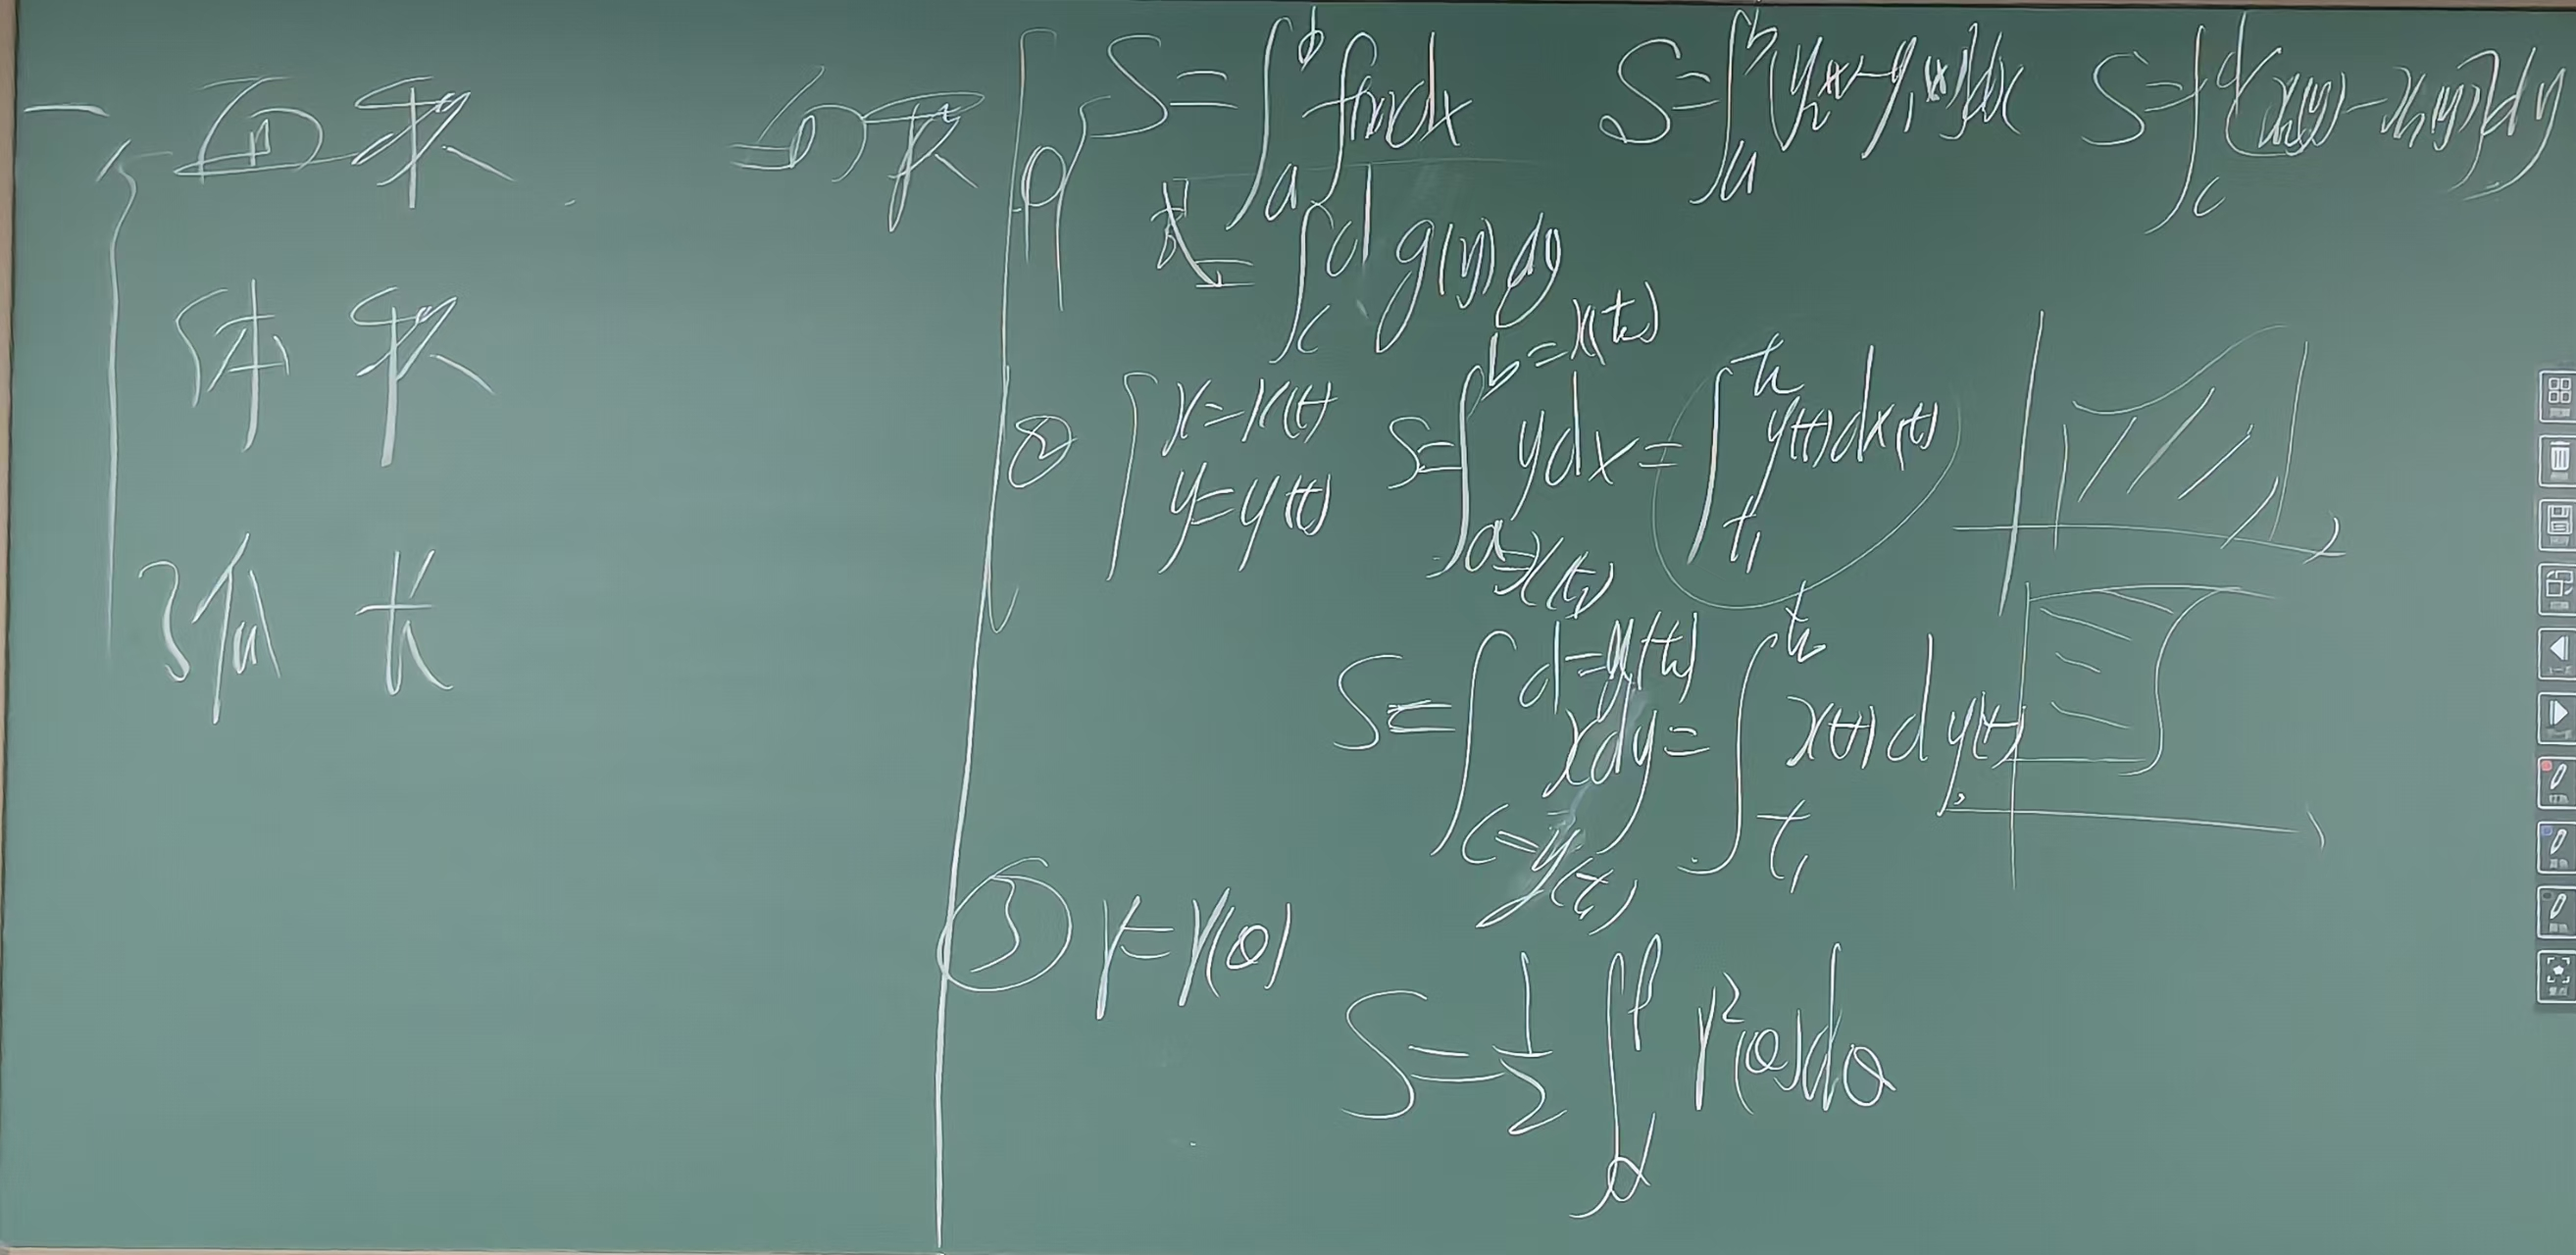 一 面积
体积
弧长
面积
① S=∫_a^b f(x)dx S=∫_a^b [y₂(x)-y₁(x)]dx S=∫_c^d [x₂(y)-x₁(y)]dy
=∫_c^d g(y)dy
② { x=x(t) y=y(t) S=∫_{a=x(t₁)}^{b=x(t₂)} ydx=∫_{t₁}^{t₂} y(t)dx(t)
S=∫_{c=y(t₁)}^{d=y(t₂)} xdy=∫_{t₁}^{t₂} x(t)dy(t)
③ r=r(θ)
S=1/2 ∫_α^β r²(θ)dθ